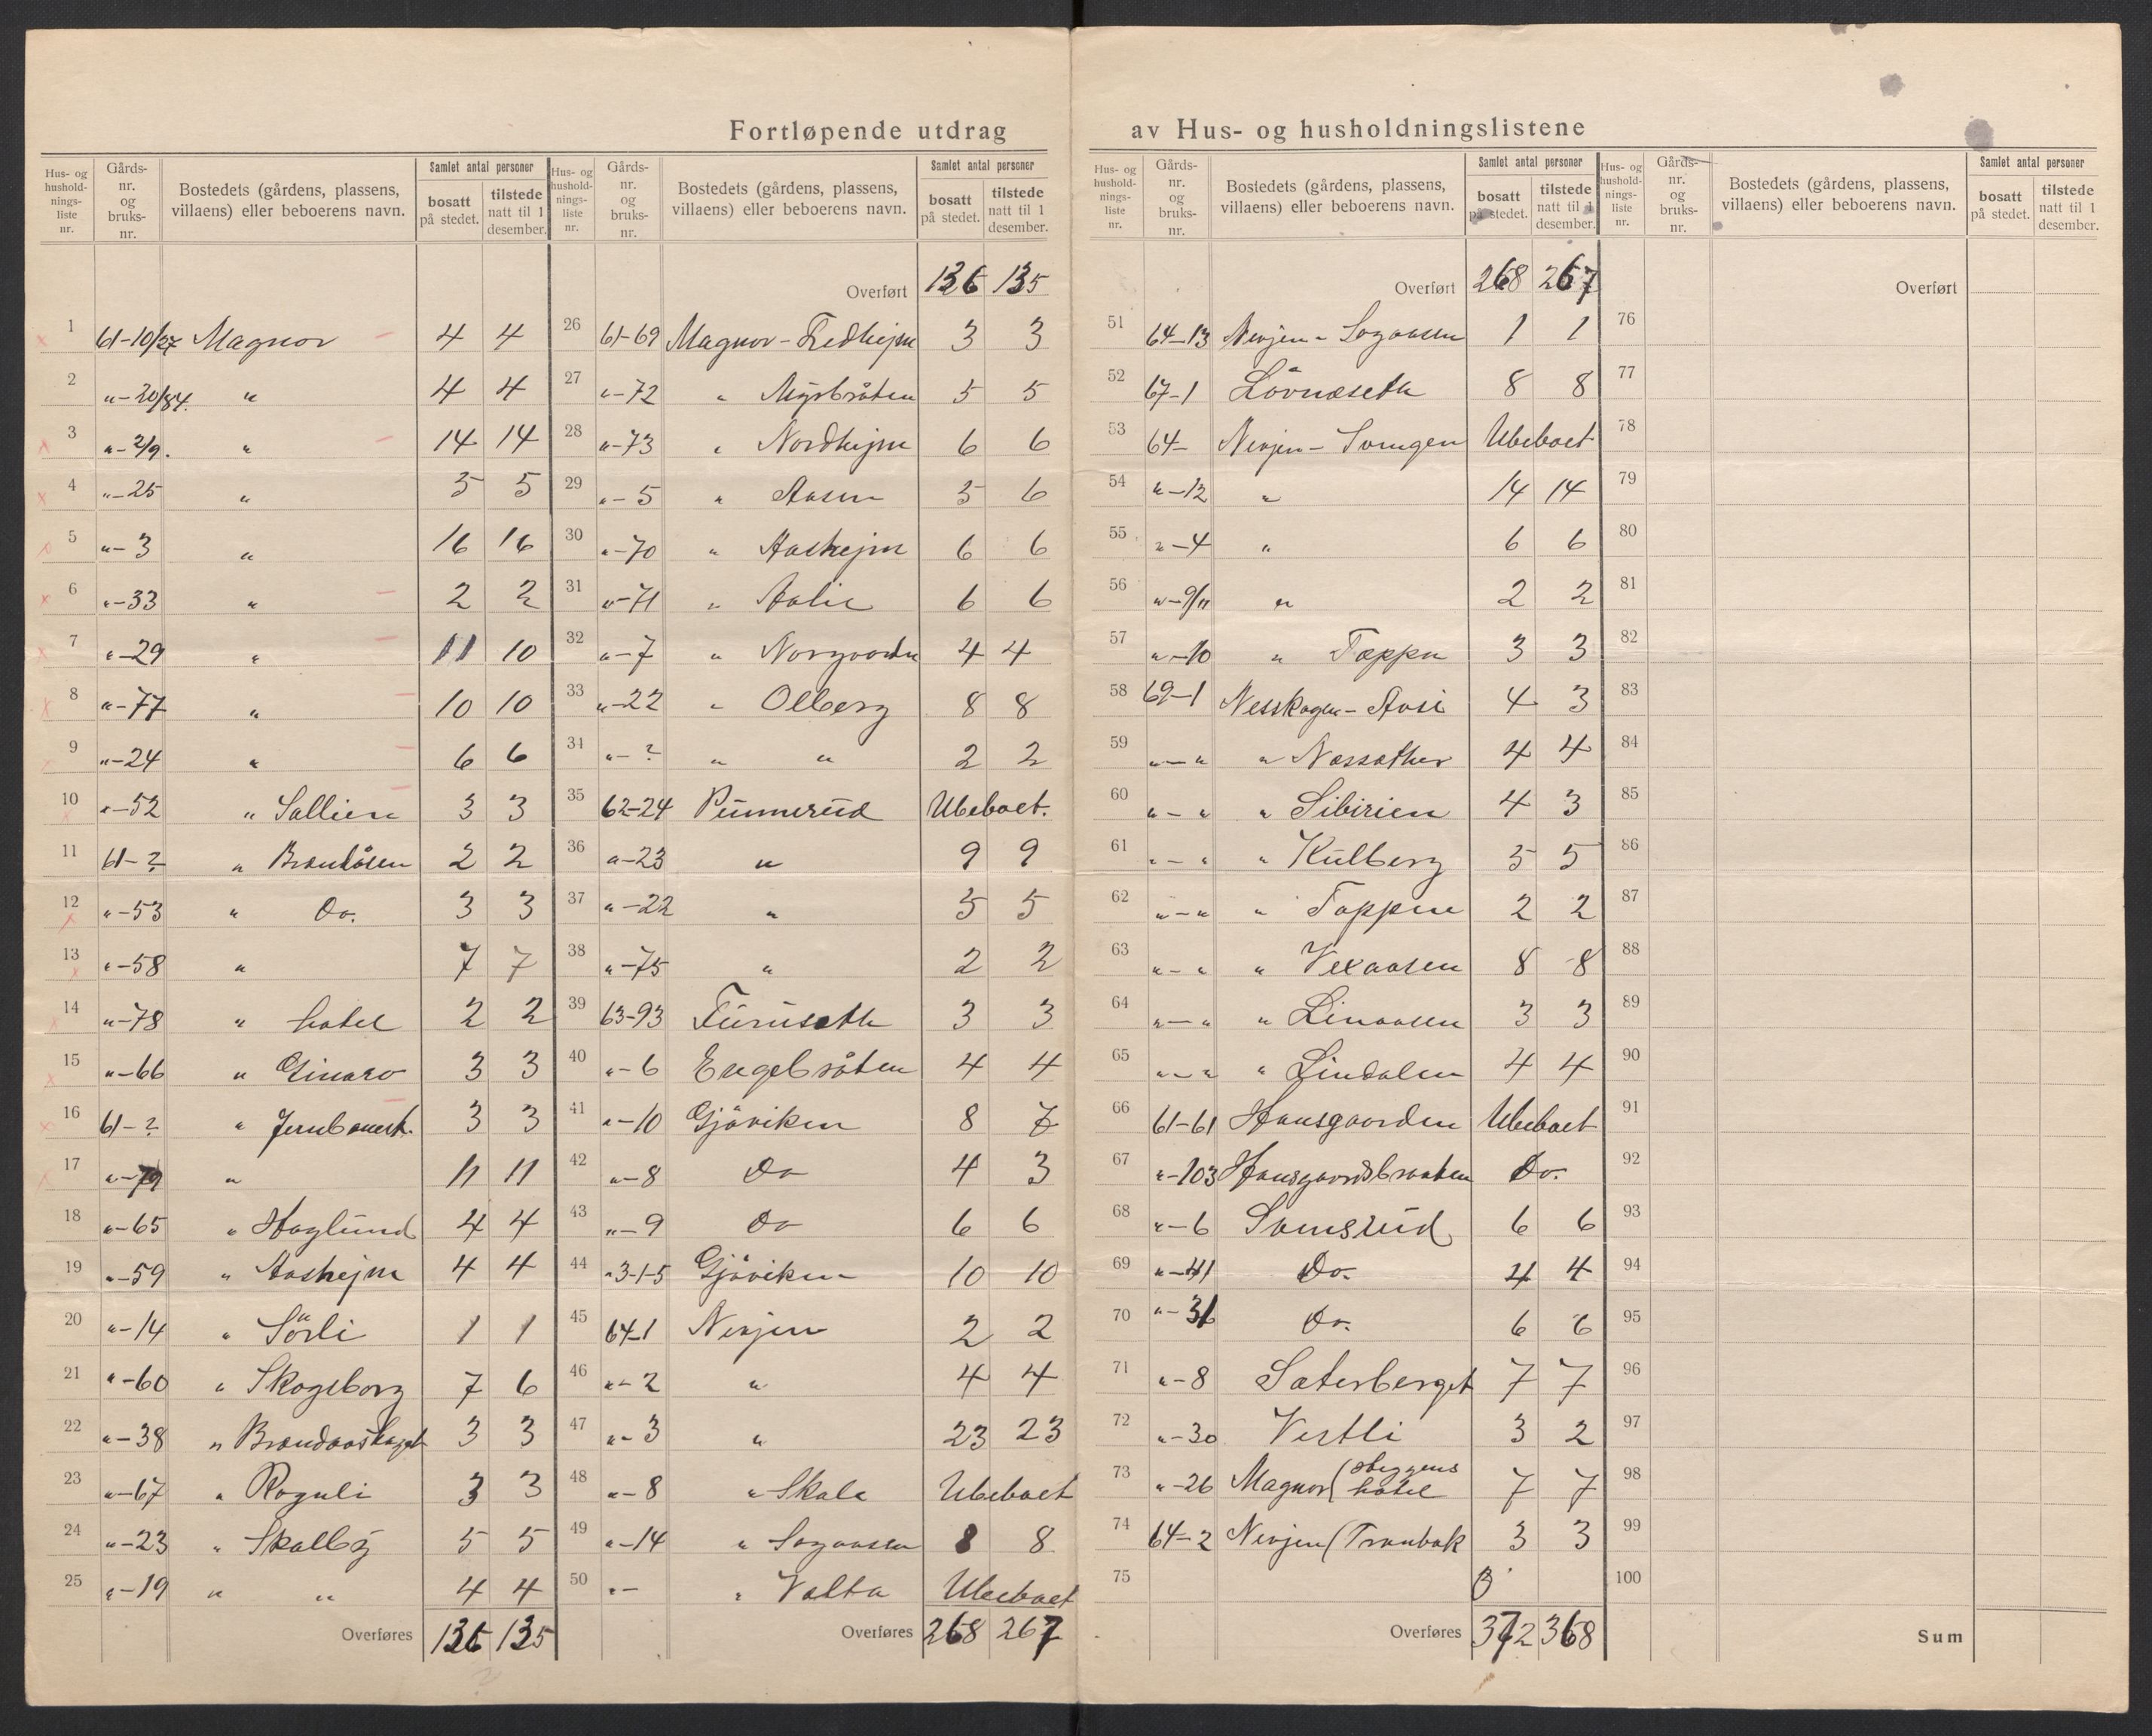 Fortløpende utdrag av Hus- og husholdningslistene
Hus- og husholdningsliste nr. | Gårds- nr. og bruks- nr. | Bostedets (gårdens, plassens, villaens) eller beboerens navn. | Samlet antal personer | bosatt på stedet. | tilstede natt til 1 desember.
1 61-10/27 Magnor 4 4
2 "-20/84. " 4 4
3 "-2/9. " 14 14
4 "-25 " 5 5
5 "-3 " 16 16
6 "-33 " 2 2
7 "-29 " 11 10
8 "-77 " 10 10
9 "-24 " 6 6
10 "-52 " Sallien 3 3
11 61-? " Brandåsen 2 2
12 "-53 " Do. 3 3
13 "-58 " 7 7
14 "-78 " hotel 2 2
15 "-66 " 3 3
16 61-? " Jernbanest. 3 3
17 "-79 " 11 11
18 "-65 " Haglund 4 4
19 "-59 " Aashejm 4 4
20 "-14 " Sörli 1 1
21 "-60 " Skogsborg 7 6
22 "-38 " 3 3
23 "-67 " Roguli 3 3
24 "-23 " Skallbÿ 5 5
25 "-19 " " 4 4
Overføres 136 135
Hus- og husholdningsliste nr. | Gårds- nr. og bruks- nr. | Bostedets (gårdens, plassens, villaens) eller beboerens navn. | Samlet antal personer | bosatt på stedet. | tilstede natt til 1 desember.
Overført 136 135
26 61-69 Magnor-Fredhejm 3 3
27 "-72 " Myrbråten 5 5
28 "-73 " Nordhejm 6 6
29 "-5 " Aasen 5 6
30 "-70 " Aashejm 6 6
31 "-71 " Aalie 6 6
32 "-7 " Norgaarden 4 4
33 "-22 " Olberg 8 8
34 "-? " " 2 2
35 62-24 Punnerud Ubeboet.
36 "-23 " 9 9
37 "-22 " 5 5
38 "-75 " 2 2
39 63-93 Furuseth 3 3
40 "-6 Engelbråten 4 4
41 "-10 Gjöviken 8 7
42 "-8 Do 4 3
43 "-9 Do 6 6
44 "3-1-5 Gjöviken 10 10
45 64-1 Nevjen 2 2
46 "-2 " 4 4
47 "-3 " 23 23
48 "-8 " Skala Ubeboet
49 "-14 " Sogaasen 8 8
50 "- " Valta Ubeboet
Overføres 268 267
Hus- og husholdningsliste nr. | Gårds- nr. og bruks- nr. | Bostedets (gårdens, plassens, villaens) eller beboerens navn. | Samlet antal personer | bosatt på stedet. | tilstede natt til 1 desember.
Overført 268 267
51 64-13 Nevjen-Sogaasen 1 1
52 67-1 Lövnæseth 8 8
53 64- Nevjen- Ubeboet
54 "-12 " 14 14
55 "-4 " 6 6
56 "-9/11 " 2 2
57 "-10 " Tæppen 3 3
58 69-1 Nesskogen-Aasi 4 3
59 "-" " Næssæther 4 4
60 "-" " Sibirien 4 3
61 "-" " Kulberg 5 5
62 "-" " Tappen 2 2
63 "-" " Vexaasen 8 8
64 "-" " Linaasen 3 3
65 "-" " Lindalen 4 4
66 61-61 Hansgaarden Ubeboet
67 "-103 Hansgaardsbraaten Do.
68 "-6 Samsrud 6 6
69 "-41 Do. 4 4
70 "-31 Do. 6 6
71 "-8 Sæterberget 7 7
72 "-30 Vestli 3 2
73 "-26 Magnor (Bryggens hotel 7 7
74 64-2 Nevjen (Tranbak 3 3
75
Overføres 372 368
Hus- og husholdningsliste nr. | Gårds- nr. og bruks- nr. | Bostedets (gårdens, plassens, villaens) eller beboerens navn. | Samlet antal personer | bosatt på stedet. | tilstede natt til 1 desember.
Overført
76
77
78
79
80
81
82
83
84
85
86
87
88
89
90
91
92
93
94
95
96
97
98
99
100
Sum